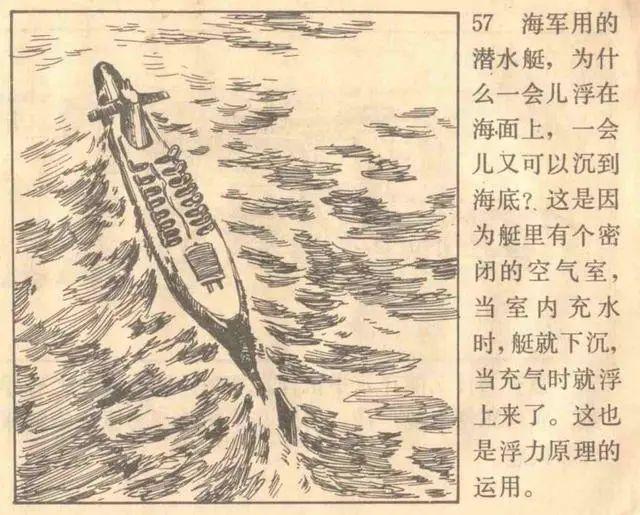 57 海军用的
潜水艇，为什
么一会儿浮在
海面上，一会
儿又可以沉到
海底？这是因
为艇里有个密
闭的空气室，
当室内充水
时，艇就下沉，
当充气时就浮
上来了。这也
是浮力原理的
运用。